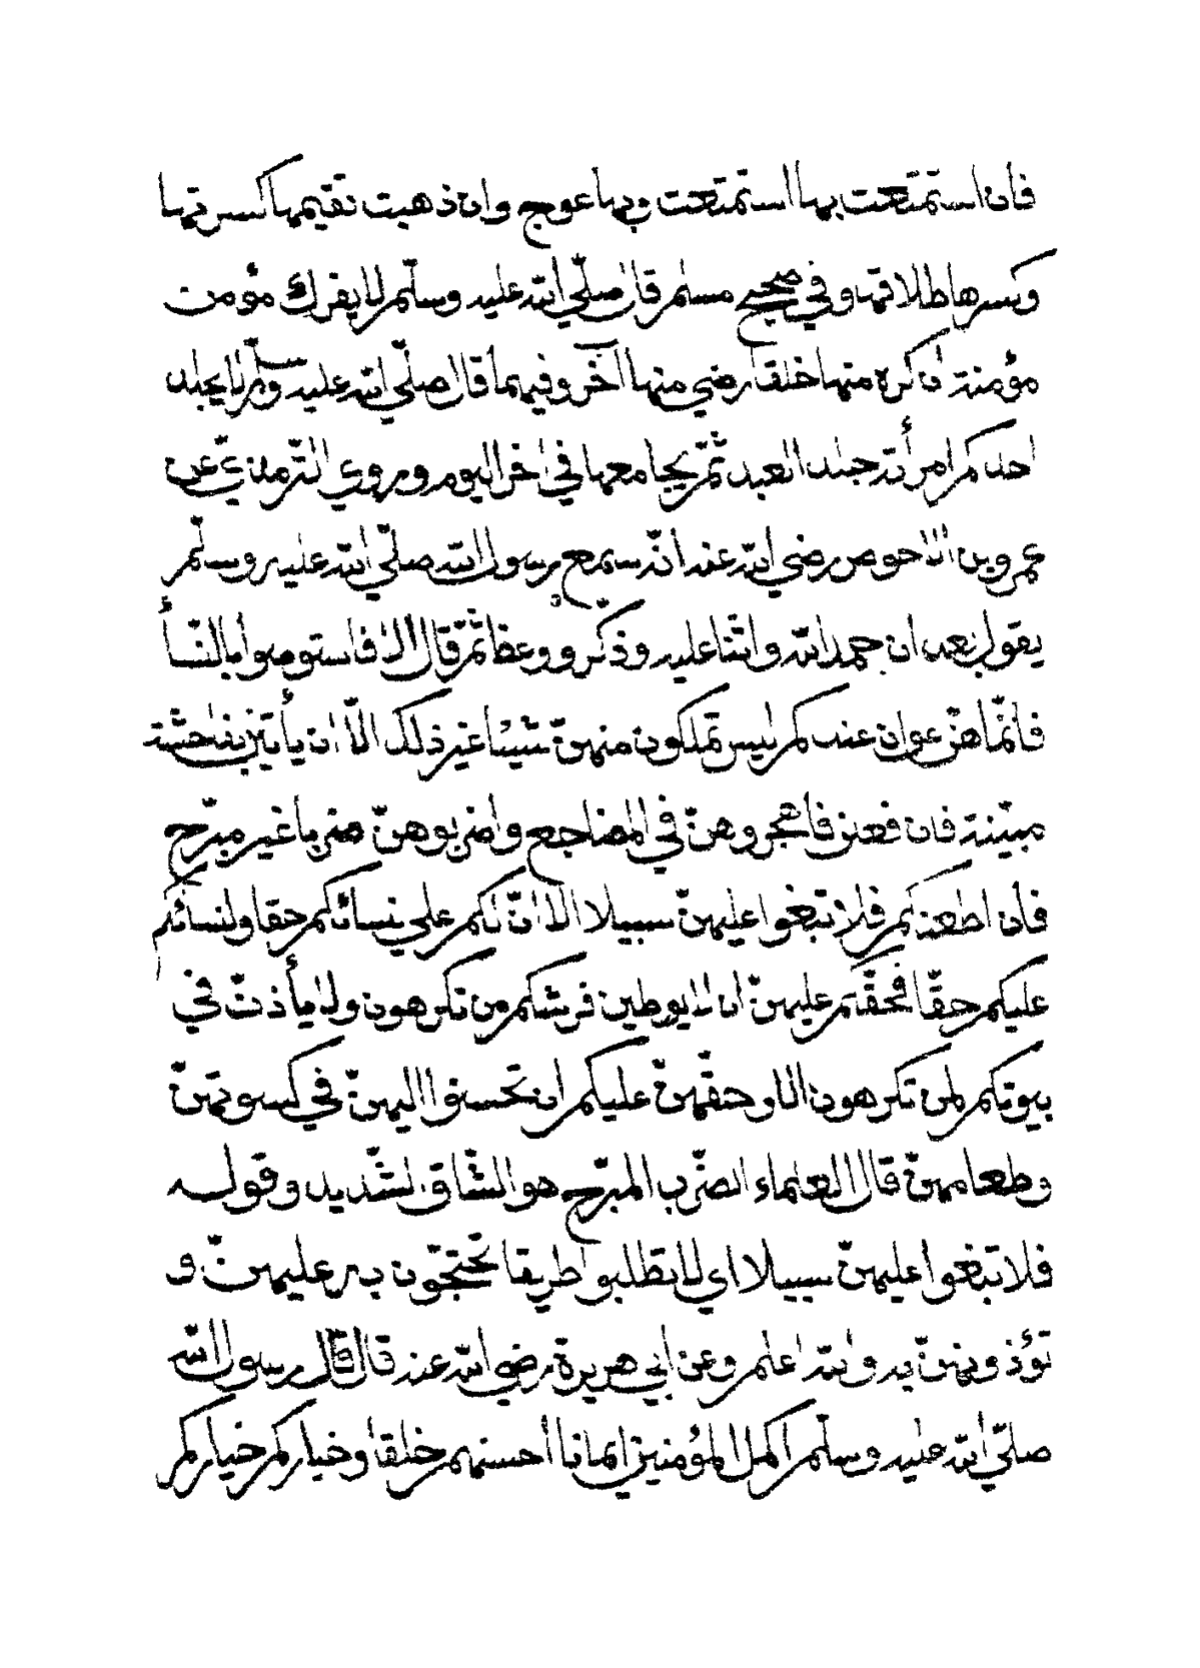 فان استمتعت بها استمتعت وبها عوج وان ذهبت تقيمها كسرتها
وكسرها طلاقها وفي صحيح مسلم قال صلّي الله عليه وسلّم لا يفرك مؤمن
مؤمنة ان كره منها خلقا رضي منها آخر وفيهما قال صلّي الله عليه وسلّم لا يجلد
احدكم امرأته جلد العبد ثمّ يجامعها في اخر اليوم وروي التّرمذيّ عن
عمرو بن الاحوص رضي الله عنه انّه سمع رسول الله صلّي الله عليه وسلّم
يقول بعد ان حمد الله واثنا عليه وذكّر ووعظ ثمّ قال الا فاستوصوا بالنّسأ
فانّما هنّ عوان عندكم ليس تملكون منهنّ شيئا غير ذلك الّا ان يأتين بفاحشة
مبيّنة فان فعلن فاهجروهنّ في المضاجع واضربوهنّ ضربا غير مبرّح
فان اطعنكم فلا تبغوا عليهنّ سبيلا الا انّ لكم علي نسائكم حقا ولنسائكم
عليكم حقّا فحقّكم عليهنّ ان لا يوطين فرشكم من تكرهون ولا يأذنّ في
بيوتكم لمن تكرهون الا وحقّهنّ عليكم ان تحسنوا اليهنّ في كسوتهنّ
وطعامهنّ قال العلماء الضّرب المبرّح هو الشّاق الشّديد وقوله
فلا تبغوا عليهنّ سبيلا اي لا تطلبوا طريقا تحتجّون به عليهنّ و
تؤذونهنّ به والله اعلم وعن ابي هريرة رضي الله عنه قال قال رسول الله
صلّي الله عليه وسلّم اكمل المؤمنين ايمانا احسنهم خلقا وخياركم خياركم